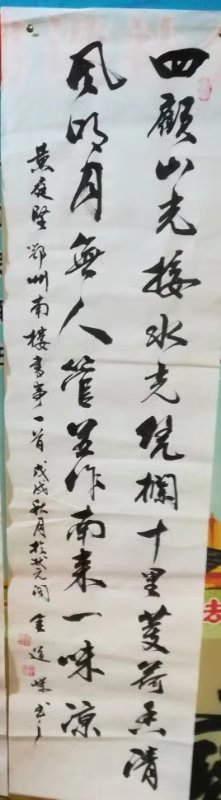 四顧山光接水光凭欄十里芰荷香清
風明月無人管並作南来一味凉
黄庭堅鄂州南樓書事一首戊戌秋月於状元阁金
去